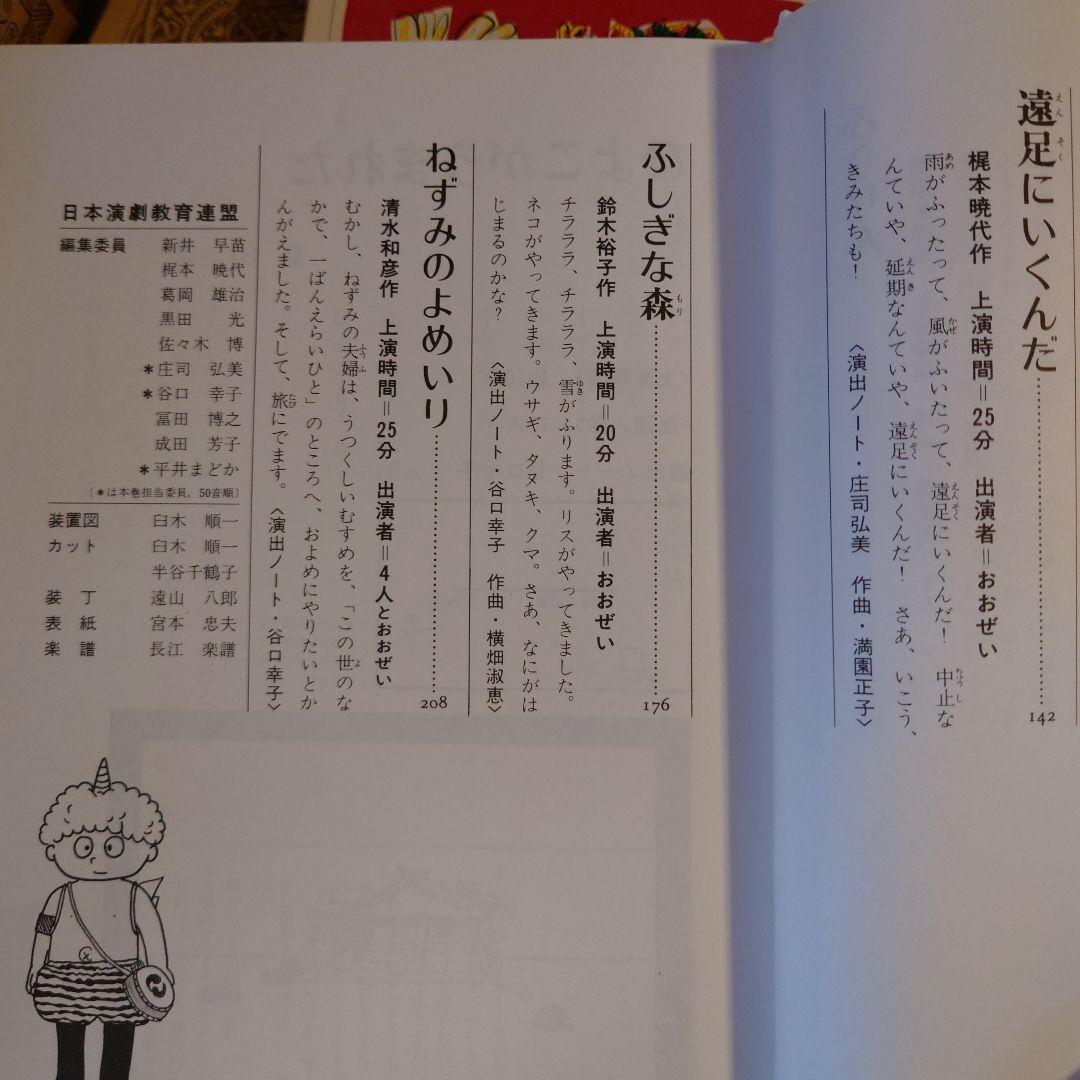 遠足にいくんだ……………142
梶本暁代作　上演時間＝25分　出演者＝おおぜい
雨がふったって、風がふいたって、遠足にいくんだ！　中止な
んていや、延期なんていや、遠足にいくんだ！　さあ、いこう、
きみたちも！　〈演出ノート・庄司弘美　作曲・満園正子〉
ふしぎな森……………176
鈴木裕子作　上演時間＝20分　出演者＝おおぜい
チラララ、チラララ、雪がふります。リスがやってきました。
ネコがやってきます。ウサギ、タヌキ、クマ。さあ、なにがは
じまるのかな？　〈演出ノート・谷口幸子　作曲・横畑淑恵〉
ねずみのよめいり……………208
清水和彦作　上演時間＝25分　出演者＝4人とおおぜい
むかし、ねずみの夫婦は、うつくしいむすめを、「この世のな
かで、一ばんえらいひと」のところへ、およめにやりたいとか
んがえました。そして、旅にでます。〈演出ノート・谷口幸子〉
日本演劇教育連盟
編集委員　新井　早苗
梶本　暁代
葛岡　雄治
黒田　光
佐々木　博
＊庄司　弘美
＊谷口　幸子
冨田　博之
成田　芳子
＊平井まどか
（＊は本巻担当委員，50音順）
装置図　臼木　順一
カット　臼木　順一
半谷千鶴子
装　丁　遠山　八郎
表　紙　宮本　忠夫
楽　譜　長江　楽譜